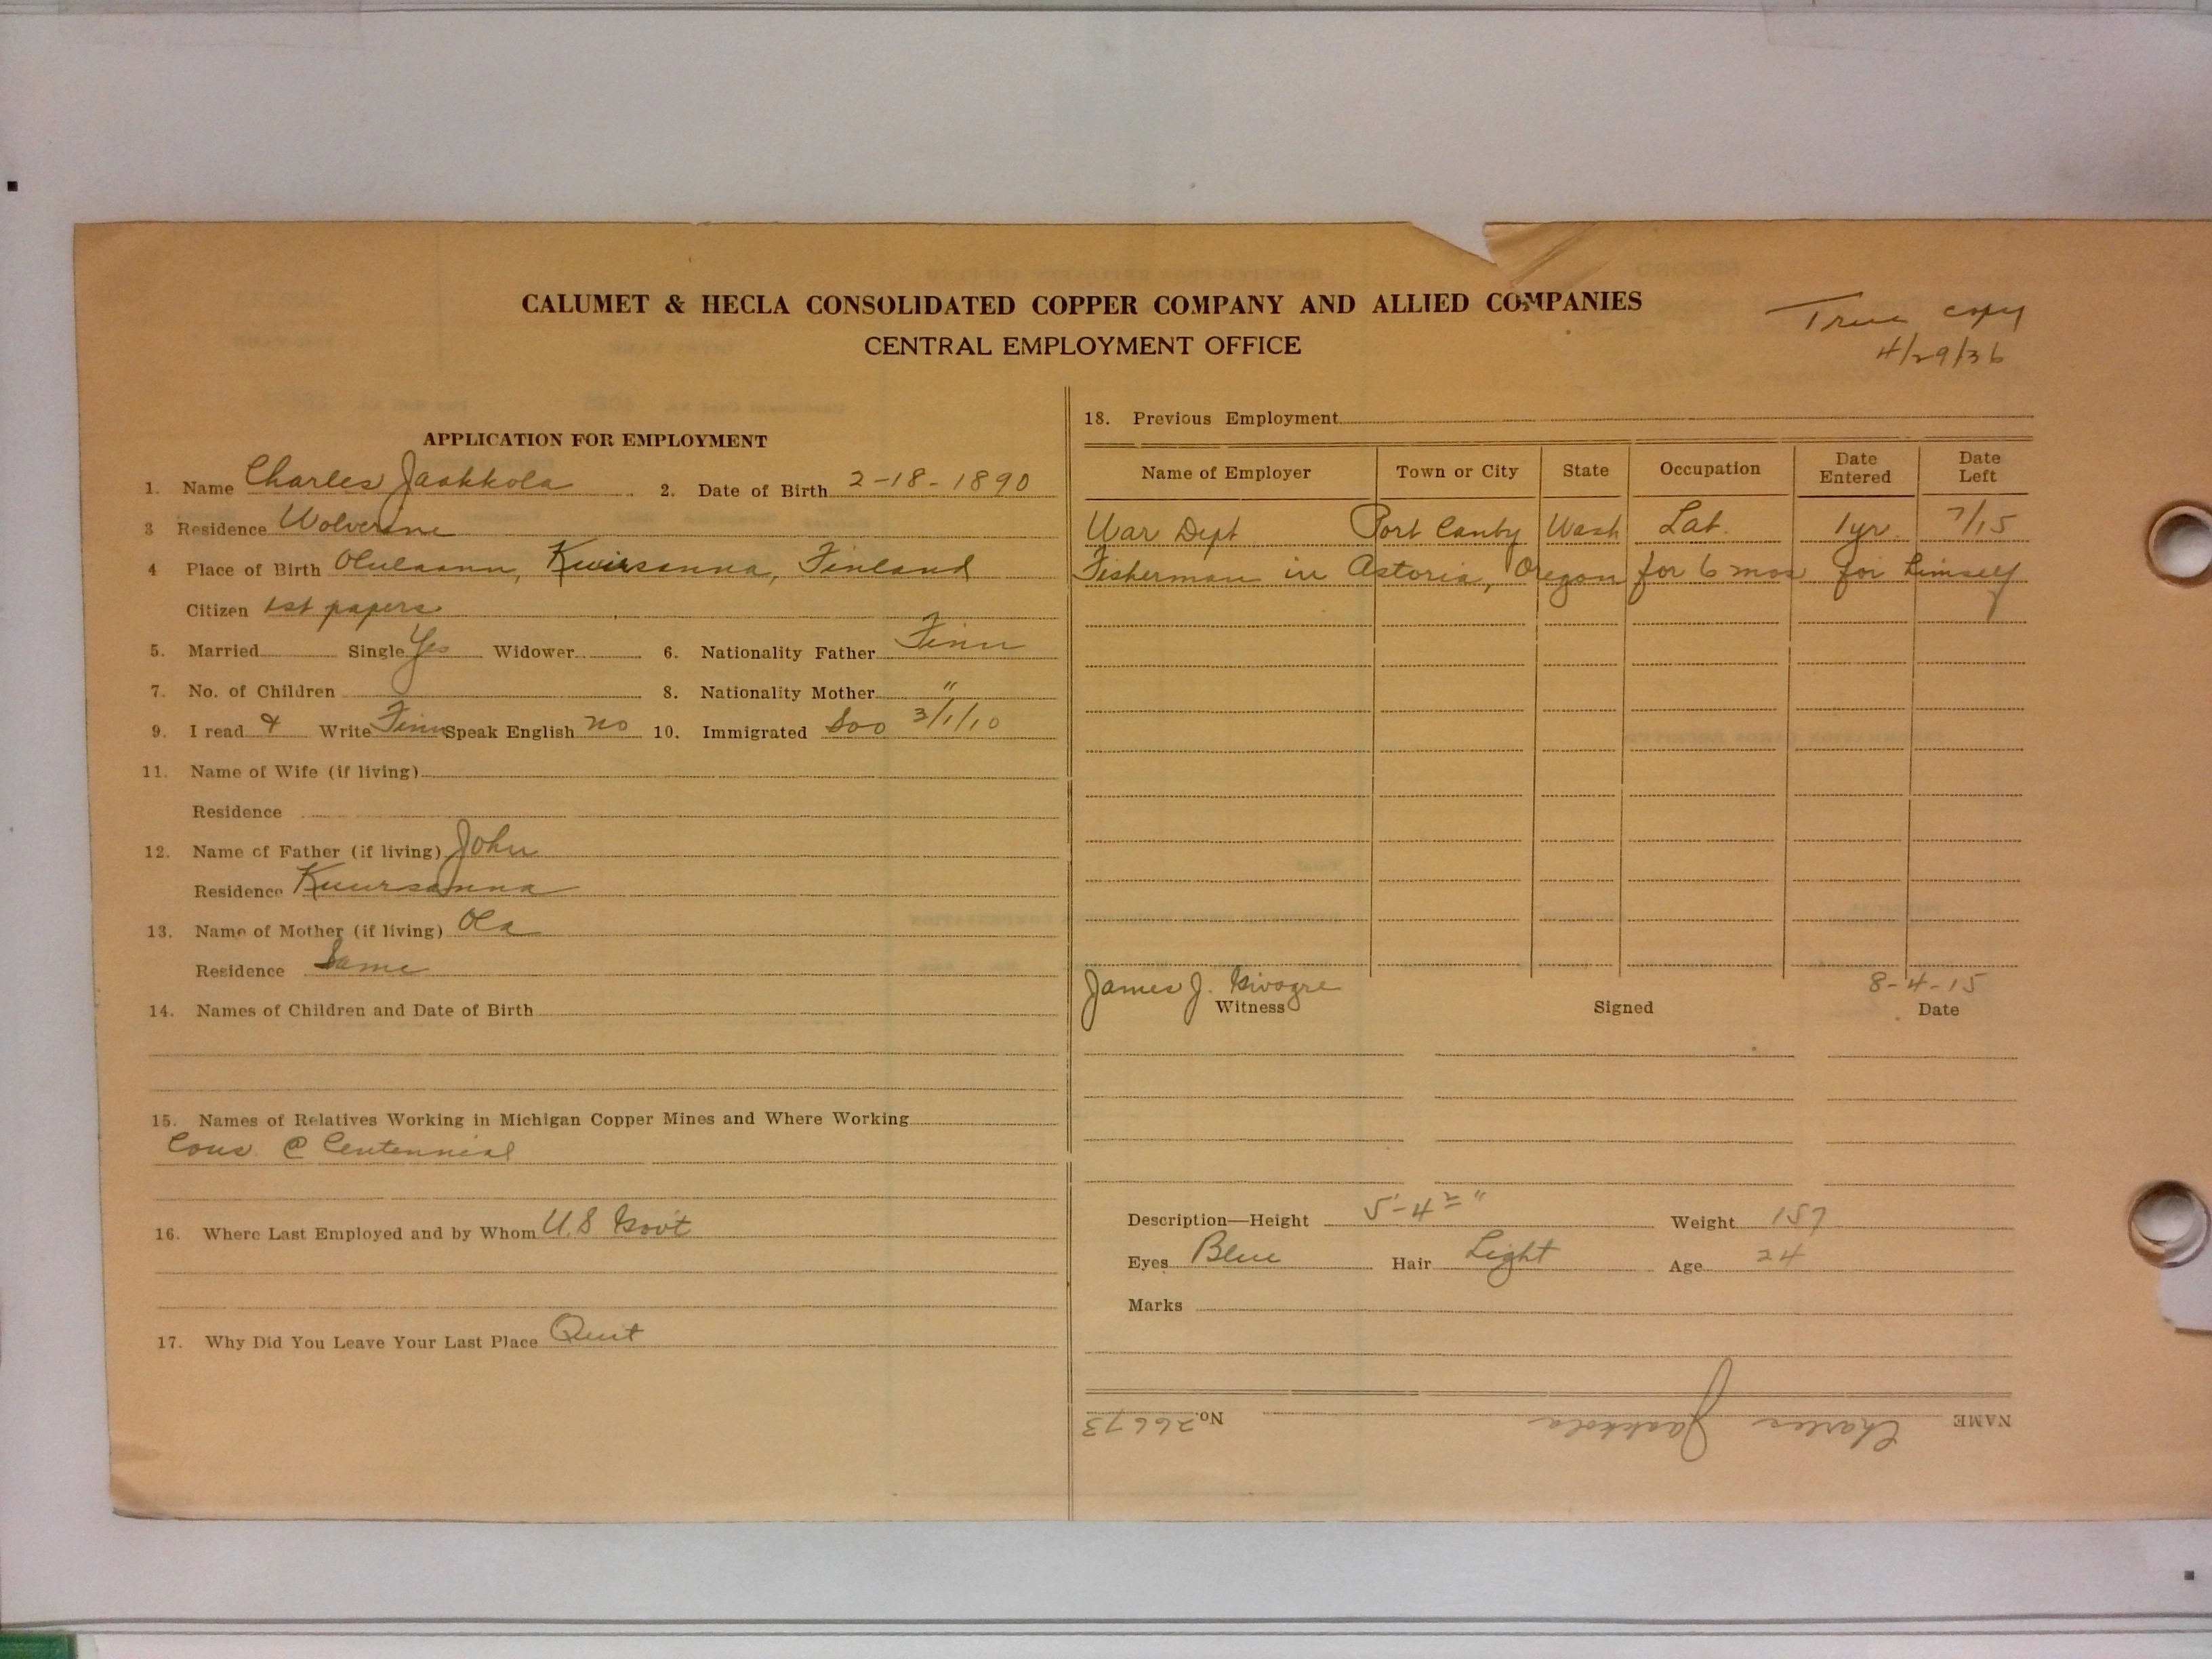 CALUMET & HECLA CONSOLIDATED COPPER COMPANY AND ALLIED COMPANIES
CENTRAL EMPLOYMENT OFFICE
True copy
4/29/36
APPLICATION FOR EMPLOYMENT
1. Name Charles Jaakkola 2. Date of Birth 2-18-1890
3 Residence Wolverine
4 Place of Birth Finland
Citizen 1st papers
5. Married Single Yes Widower 6. Nationality Father Finn
7. No. of Children 8. Nationality Mother "
9. I read & Write Finn Speak English no 10. Immigrated Soo 3/1/10
11. Name of Wife (if living)
Residence
12. Name of Father (if living) John
Residence
13. Name of Mother (if living)
Residence Same
14. Names of Children and Date of Birth
15. Names of Relatives Working in Michigan Copper Mines and Where Working
Cous. @ Centennial
16. Where Last Employed and by Whom U.S Govt
17. Why Did You Leave Your Last Place Quit
18. Previous Employment
Name of Employer Town or City State Occupation Date Entered Date Left
War Dept Port Canby Wash Lab. 1yr. 7/15
Fisherman in Astoria, Oregon for 6 mos for himself
James J. 8-4-15
Witness Signed Date
Description—Height 5'-4 2/ " Weight 157
Eyes Blue Hair Light Age 24
Marks
NAME Charles Jaakkola No. 26673